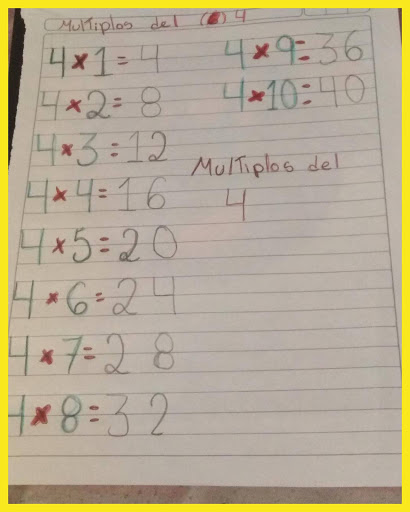 Multiplos del 4
4×1=4
4×2=8
4×3=12
4×4=16
4×5=20
4×6=24
4×7=28
4×8=32
4×9=36
4×10=40
Multiplos del
4